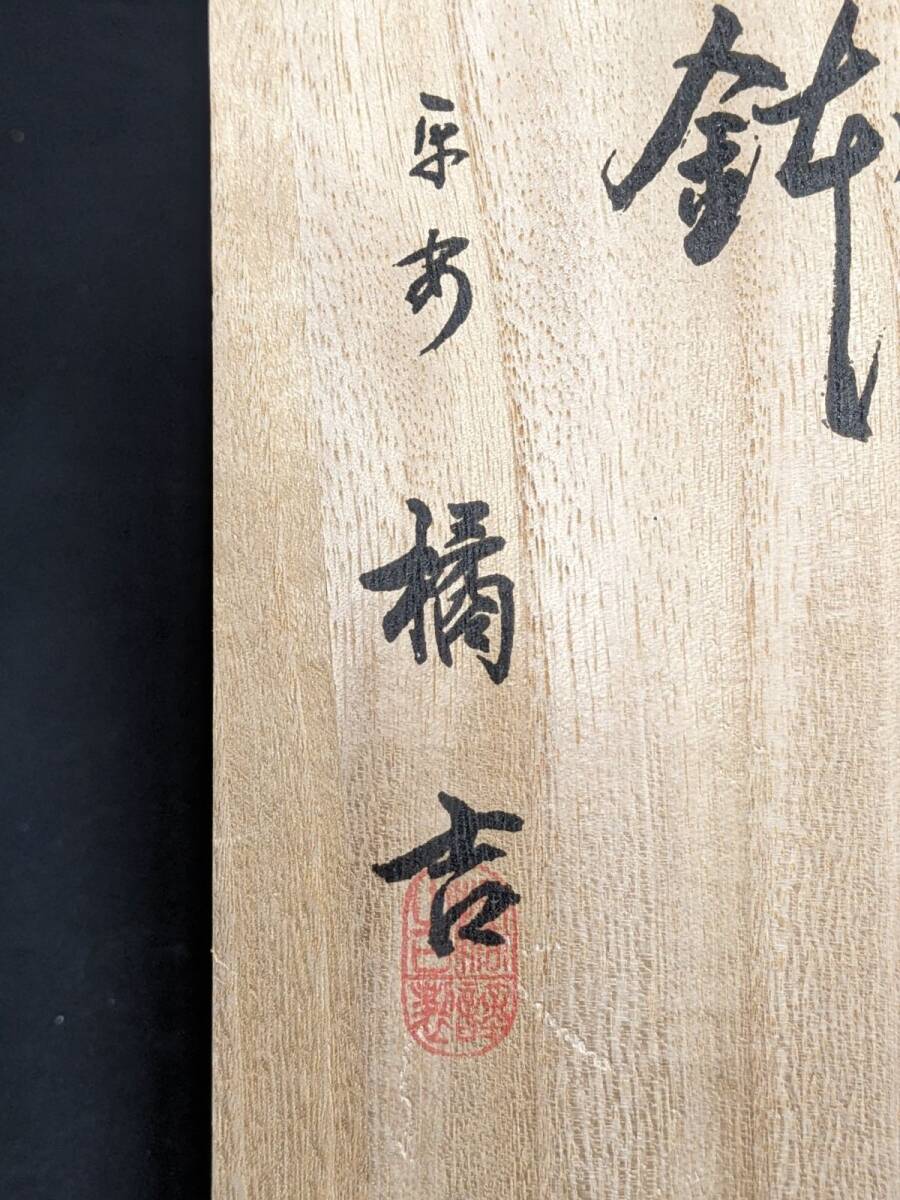 鉢
平安
橘吉